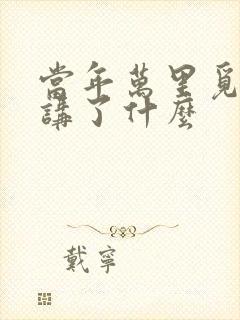 當年萬里覓
講了什麼
戴寧